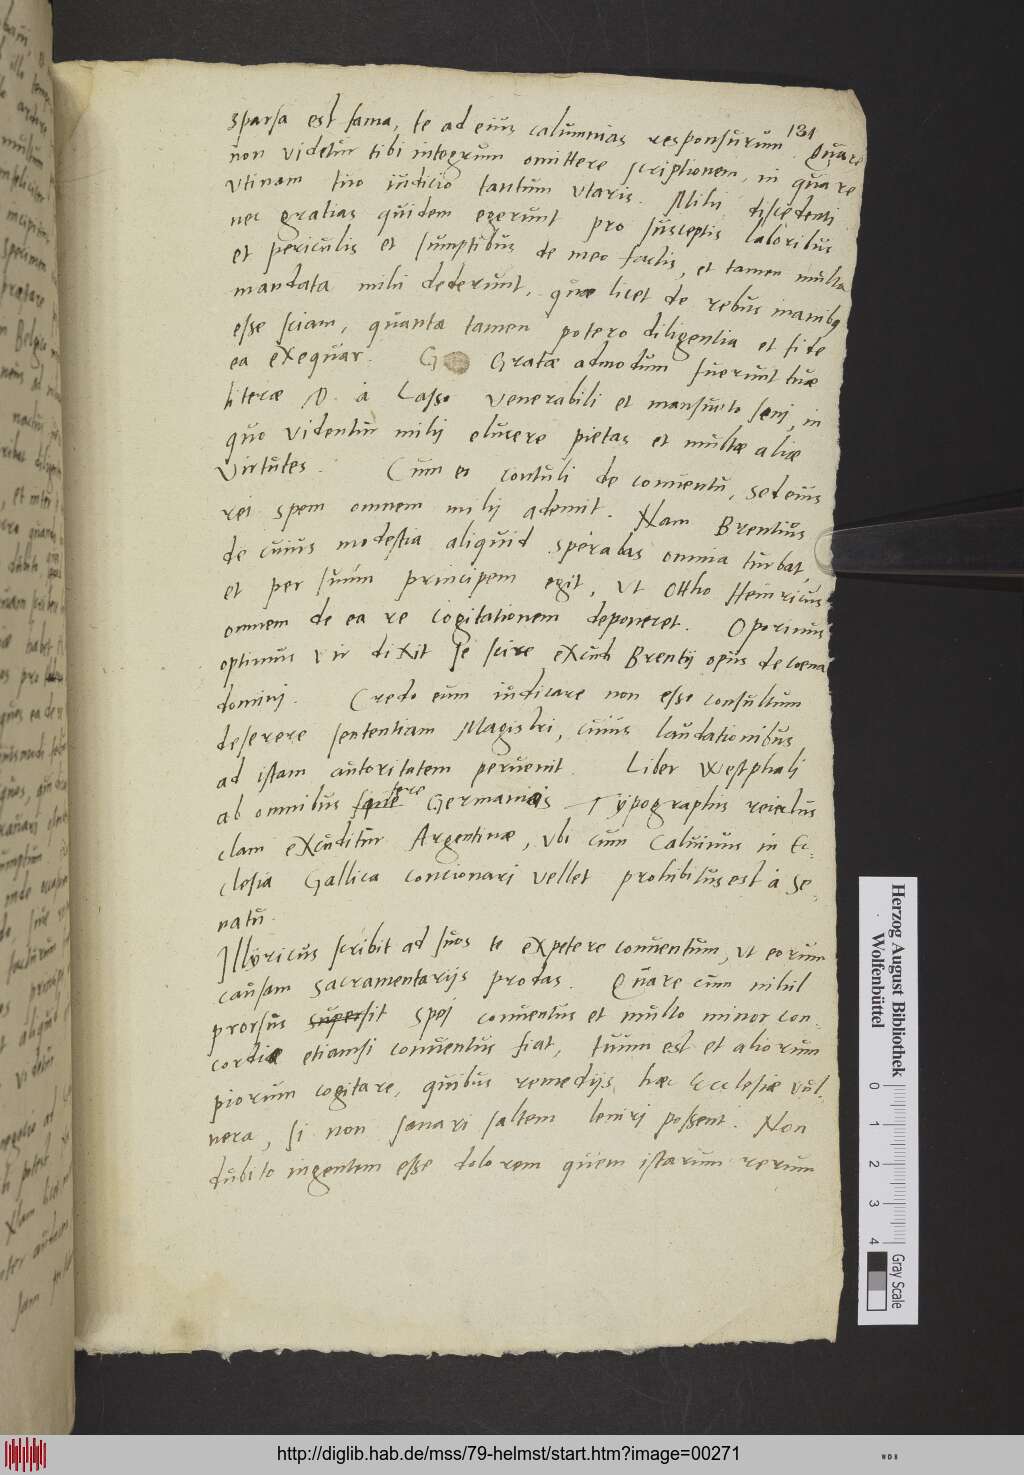 131
sparsa est fama, te ad eius calumnias responsurum. Quare
non videtur tibi integrum omittere scriptionem, in qua re
utinam tuo iudicio tantum utaris. Mihi discedenti
nec gratias quidem egerunt pro susceptis laboribus
et periculis et sumptibus de meo factis, et tamen multa
mandata mihi dederunt, quæ licet de rebus inanibq
esse sciam, quanta tamen potero diligentia et fide
ea exequar. G Gratæ admodum fuerunt tuæ
literæ D. à Lasso venerabili et mansueto seni, in
quo videntur mihi elucere pietas et multæ aliæ
virtutes. Cum eo contuli de conventu, sed eius
rei spem omnem mihi ademit. Nam Brentius
de cuius modestia aliquid sperabas omnia turbat,
et per suum principem egit, ut Ottho Heinricus
omnem de ea re cogitationem deponeret. Oporinus
optimus vir dixit se scire excudi Brentij opus de coena
domini. Credo eum iudicare non esse consultum
deserere sententiam Magistri, cuius laudationibus
ad istam autoritatem pervenit. Liber Westphali
ab omnibus fere Germaniæ Typographis reiectus
clam excuditur Argentinæ, ubi cum Calvinus in Ec-
clesia Gallica concionari vellet prohibitus est à Se-
natu.
Illyricus scribit ad suos te expetere conventum, ut eorum
causam sacramentarijs prodas. Quare cum nihil
prorsus supersit spej conventus et multo minor con-
cordiæ etiamsi conventus fiat, tuum est et aliorum
piorum cogitare, quibus remedijs hæc Ecclesiæ vul-
nera, si non sanari saltem leniri possent. Non
dubito ingentem esse dolorem quem istarum rerum
Herzog August Bibliothek
Wolfenbüttel
0 1 2 3 4
Gray Scale
http://diglib.hab.de/mss/79-helmst/start.htm?image=00271